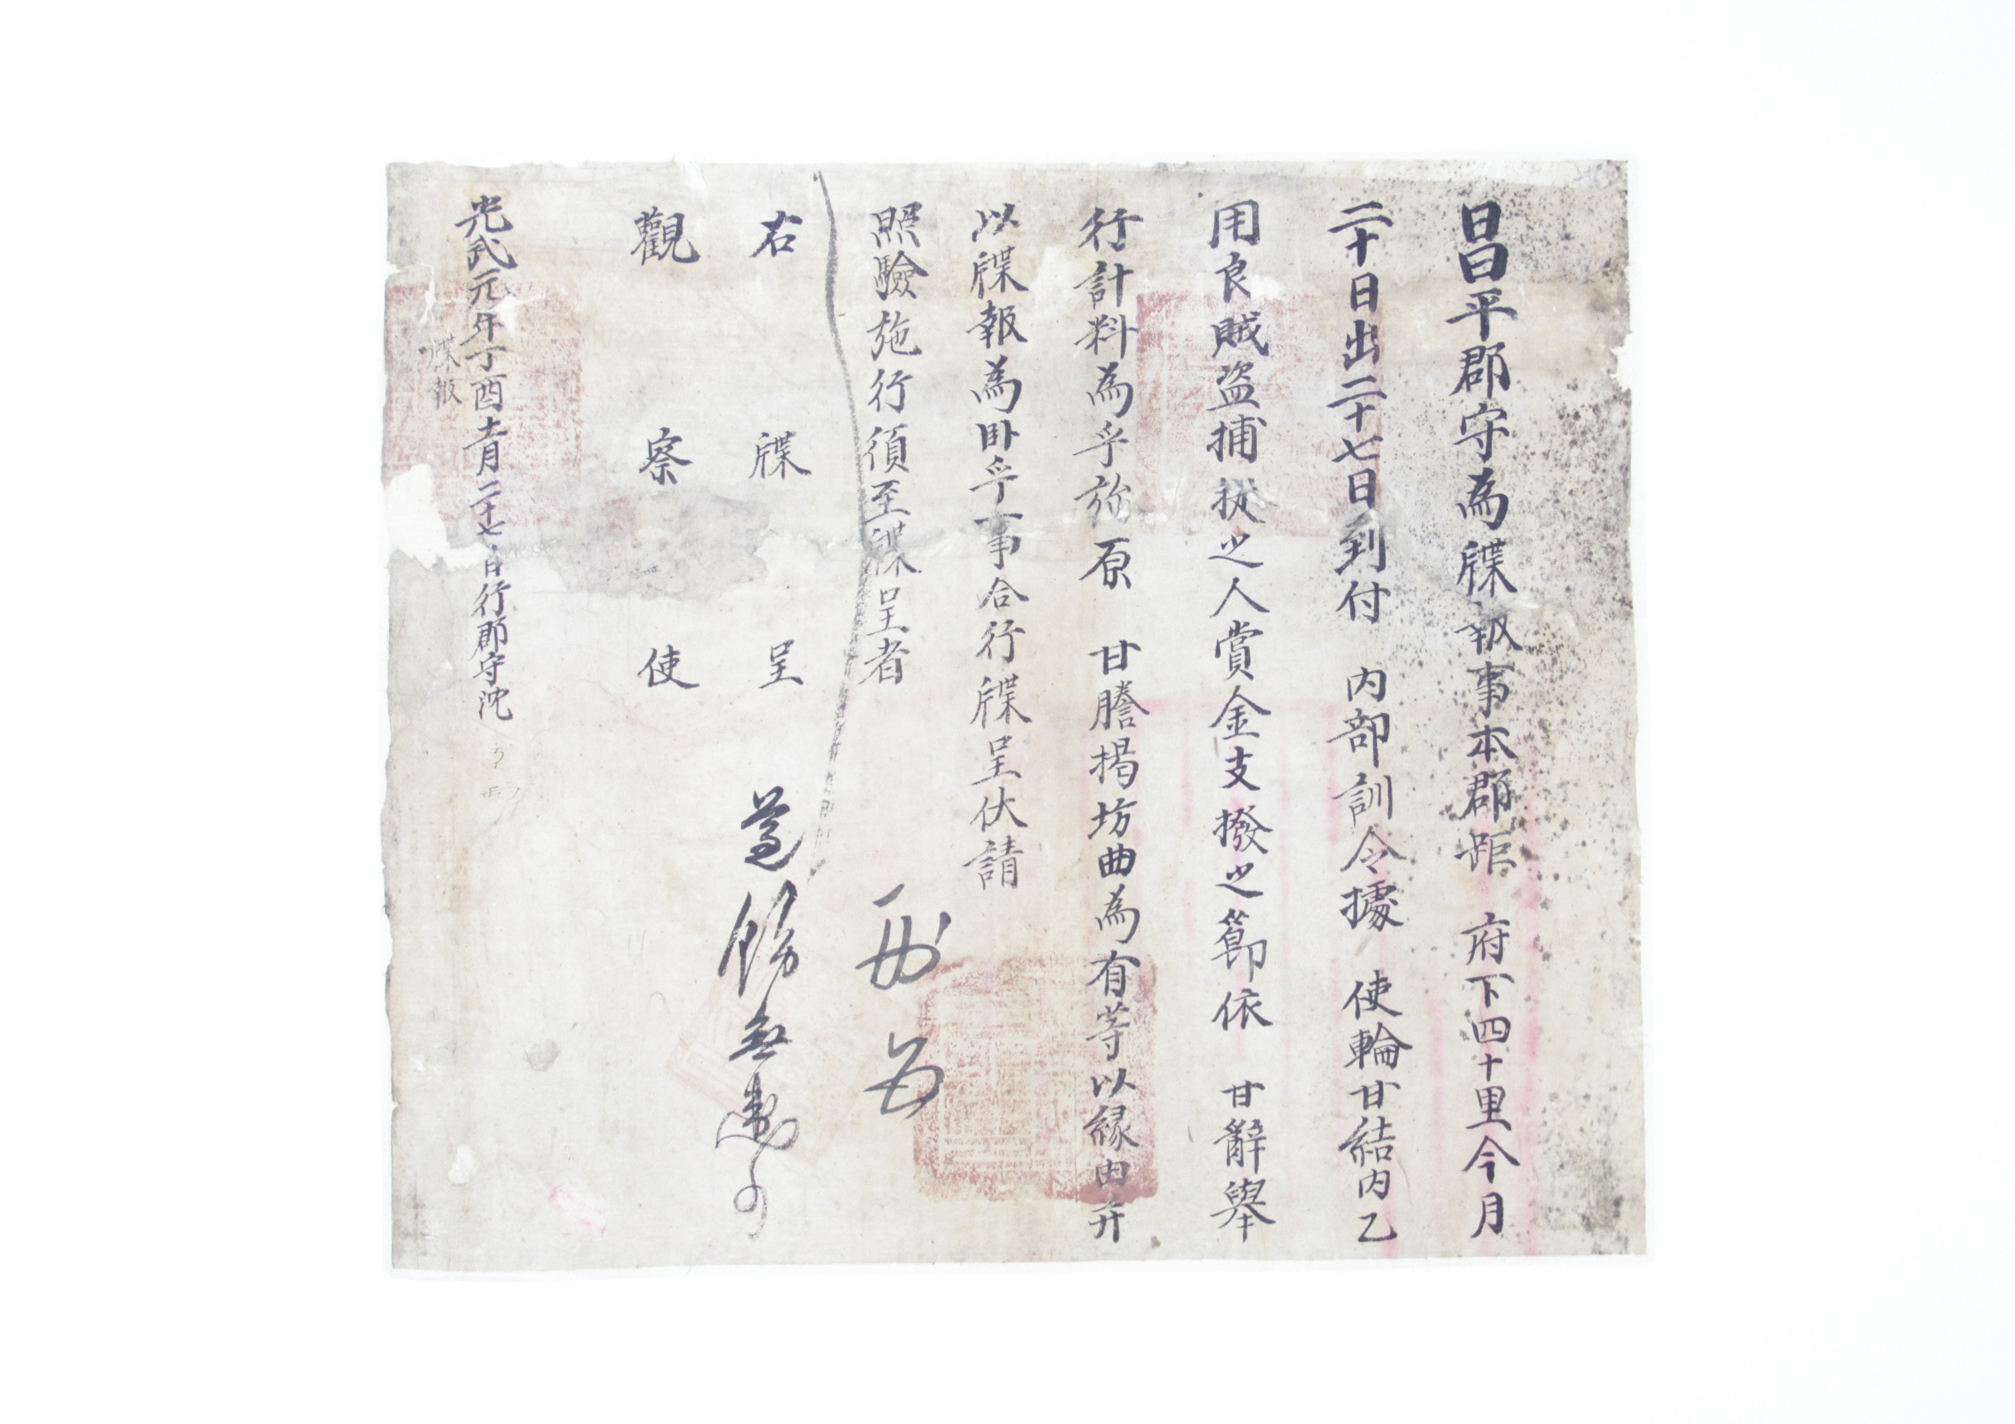 昌平郡守為牒報事本郡距 府下四十里今月
二十日出二十七日到付 內部訓令據 使輪甘結內乙
用良賊盜捕捉之人賞金支撥之節依 甘辭舉
行計料為乎旀原 甘謄揭坊曲為有等以緣由幷
以牒報為臥乎事合行牒呈伏請
照驗施行須至牒呈者
右 牒 呈
觀 察 使
光武元年丁酉十一月二十七日行郡守沈
牒報